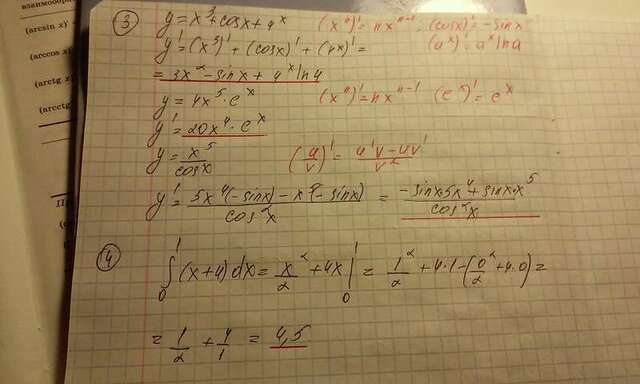 взаимнообр
(arcsin x)'
(arccos x)'
(arctg x)'
(arcctg
③ y=x³+cosx+4ˣ (xⁿ)'=nxⁿ⁻¹ (cosx)'=-sinx
y'=(x³)'+(cosx)'+(4x)'= (aˣ)'=aˣlna
=3x²-sinx+4ˣln4
y=4x⁵·eˣ (xⁿ)'=nxⁿ⁻¹ (eˣ)'=eˣ
y'=20x⁴·eˣ
y=x⁵/cosx (u/v)'=(u'v-uv')/v²
y'=(5x⁴(-sinx)-x⁵(-sinx))/cos²x=(-sinx·5x⁴+sinx·x⁵)/cos²x
④ ∫₀¹(x+4)dx=x²/2+4x|₀¹=1²/2+4·1-(0²/2+4·0)=
=1/2+4/1=4,5